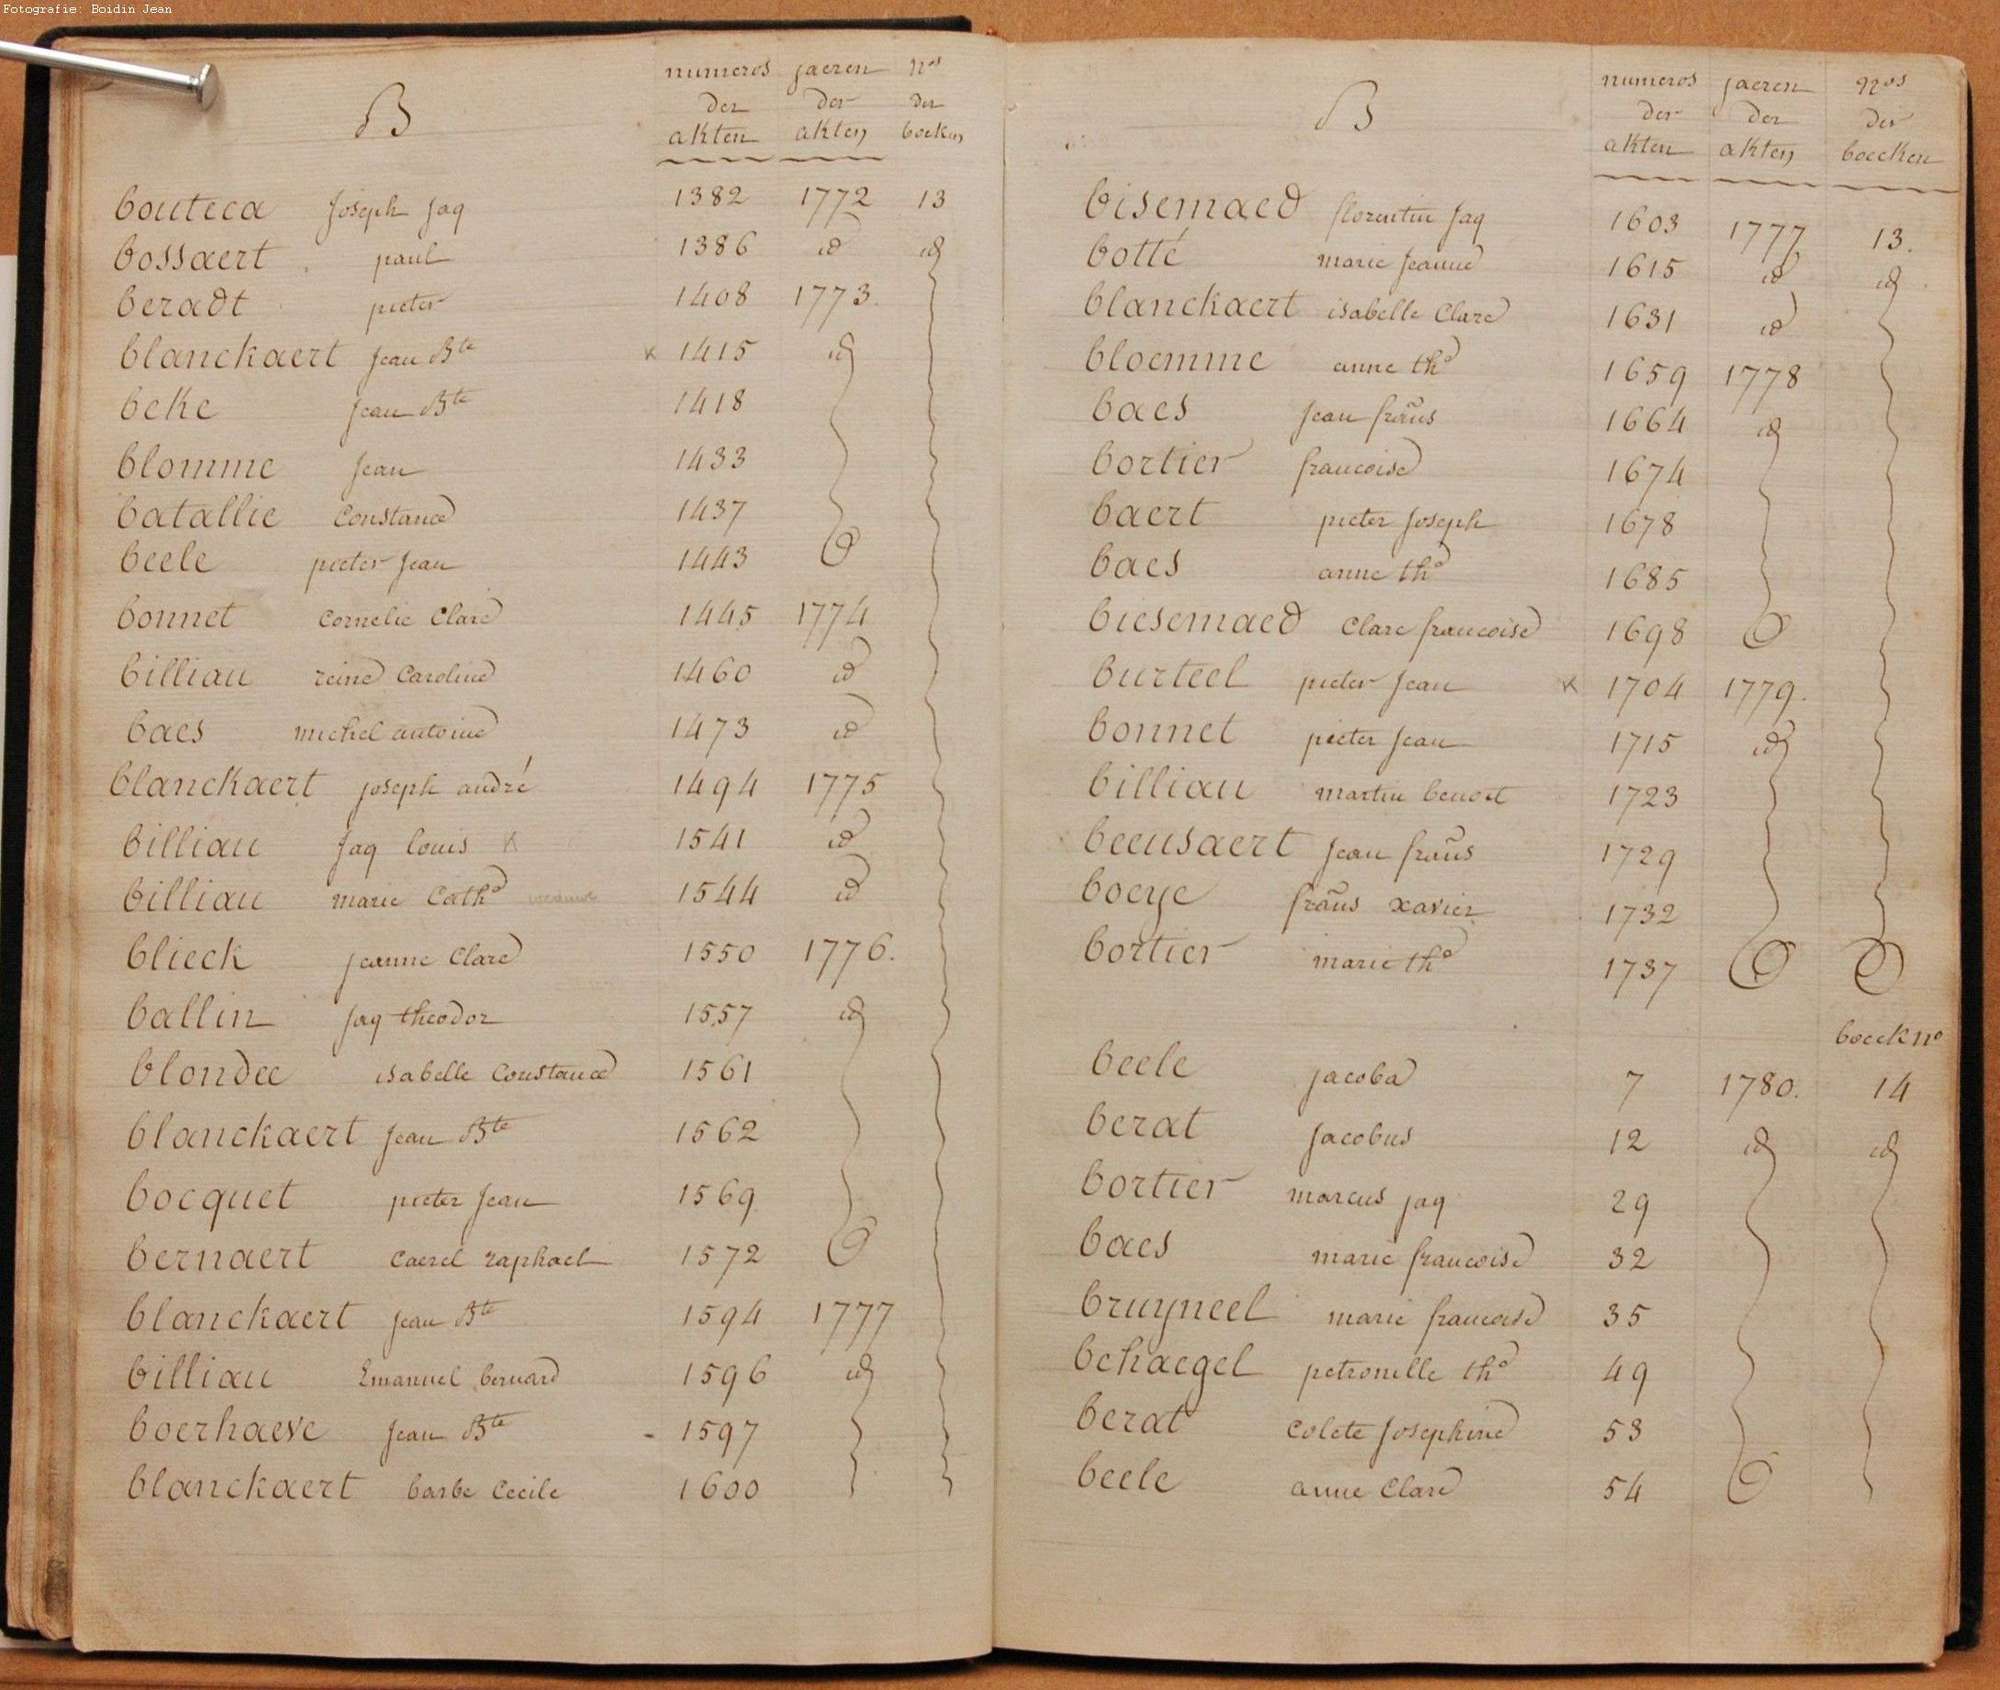 Fotografie: Boidin Jean
B numeros jaeren nos
der der der
akten akten boeken
bouteca Joseph Jaq 1382 1772 13
bossaert paul 1386 id id
beradt pieter 1408 1773.
blanckaert Jean Bte K 1415 id
beke Jean Bte 1418
blomme Jean 1433
batallie Constance 1437
beele pieter Jean 1443
bonnet Cornelie Clare 1445 1774
billiau reine Caroline 1460 id
baes michel antoine 1473 id
blanckaert joseph andré 1494 1775
billiau Jaq louis K 1541 id
billiau marie Cathe 1544 id
blieck jeanne Clare 1550 1776.
ballin Jaq theodor 1557 id
blondee isabelle Constance 1561
blanckaert Jean Bte 1562
bocquet pieter Jean 1569
bernaert Caerel raphael 1572
blanckaert Jean Bte 1594 1777
billiau Emanuel bernard 1596 id
boerhaeve Jean Bte - 1597
blanckaert barbe Cecile 1600
B numeros jaeren nos
der der der
akten akten boecken
bisemaed florentin Jaq 1603 1777 13.
botté marie Jeanne 1615 id id
blanckaert isabelle Clare 1631 id
bloemme anne the 1659 1778
baes Jean frañs 1664 id
bortier francoise 1674
baert pieter Joseph 1678
baes anne the 1685
biesemaed Clare francoise 1698
burteel pieter Jean K 1704 1779.
bonnet pieter Jean 1715 id
billiau martin benoit 1723
beeusaert Jean frañs 1729
boeye frañs xavier 1732
bortier marie the 1737
boeck no
beele jacoba 7 1780. 14
berat Jacobus 12 id id
bortier marcus jaq 29
baes marie francoise 32
bruyneel marie francoise 35
behaegel petronille the 49
berat Colete Josephine 53
beele anne Clare 54